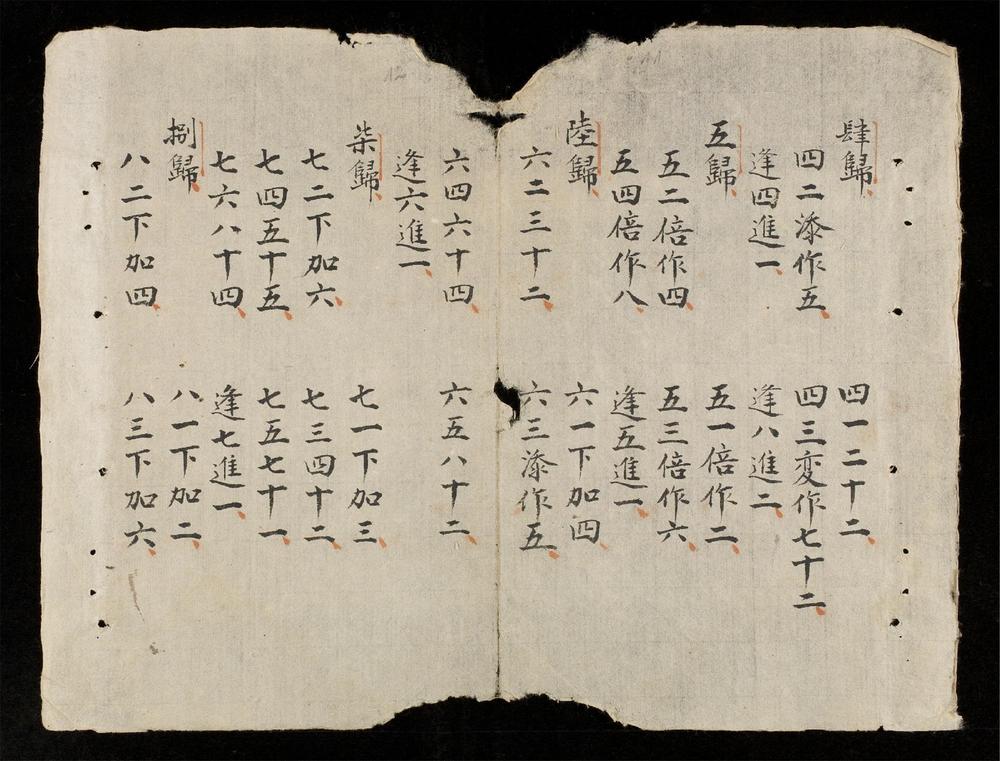 肆歸 四一二十二
四二添作五 四三変作七十二
逢四進一 逢八進二
五歸 五一倍作二
五二倍作四 五三倍作六
五四倍作八 逢五進一
陸歸 六一下加四
六二三十二 六三添作五
六四六十四 六五八十二
逢六進一
柒歸 七一下加三
七二下加六 七三四十二
七四五十五 七五七十一
七六八十四 逢七進一
捌歸 八一下加二
八二下加四 八三下加六